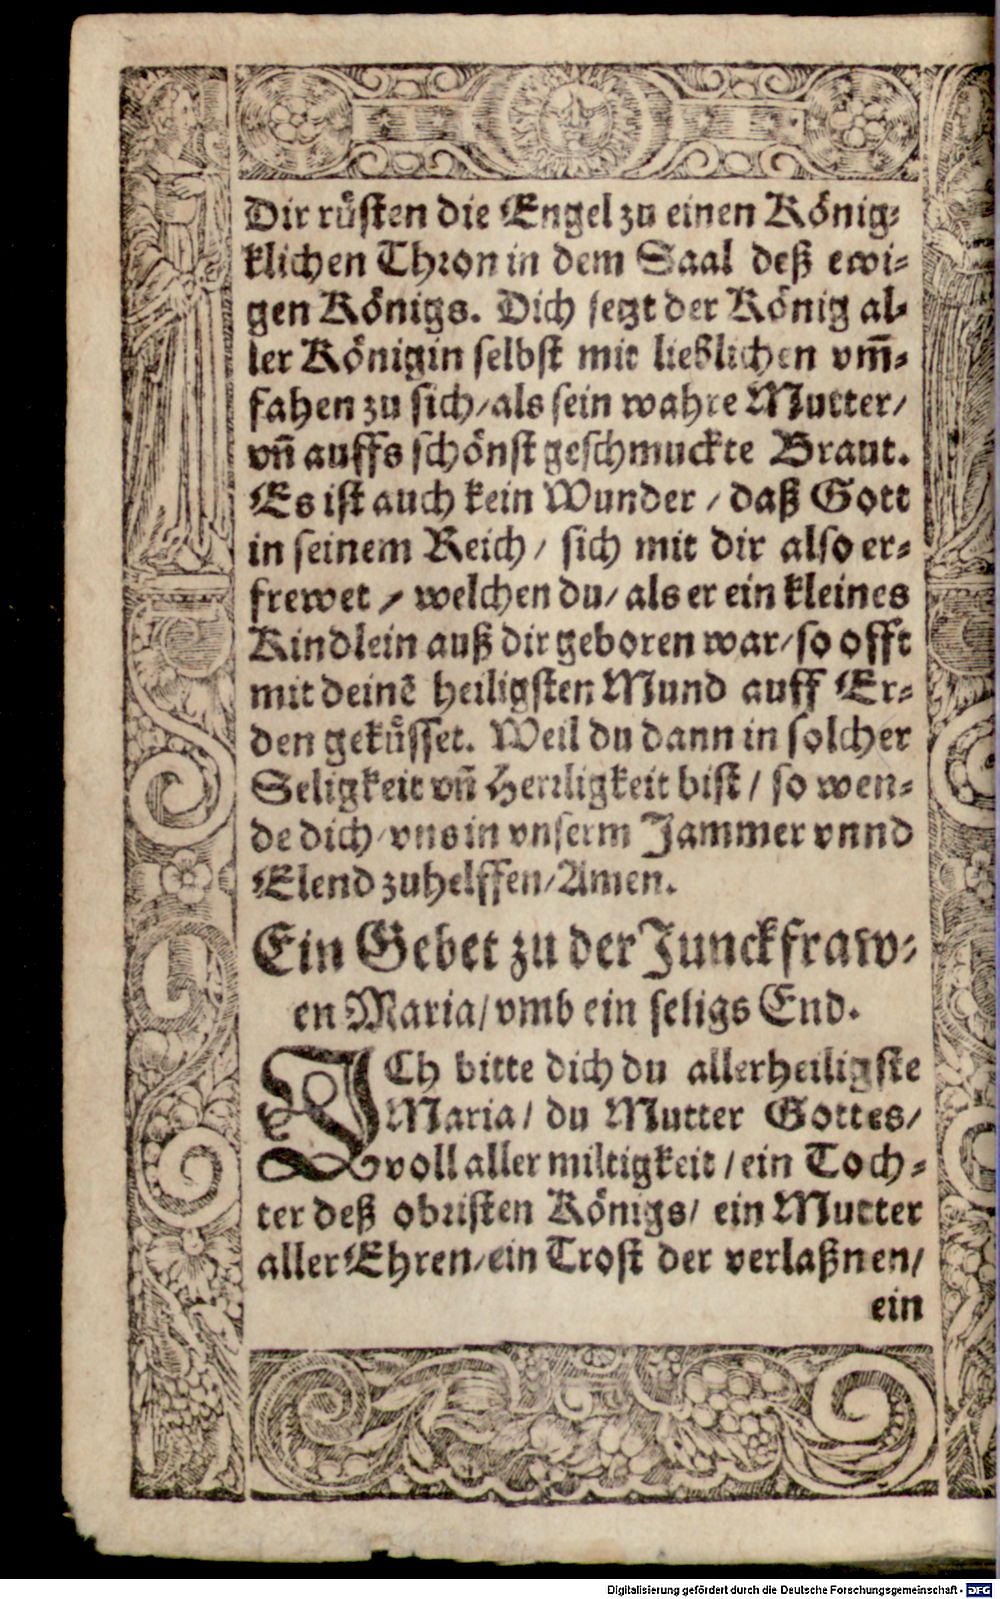 Dir ruͤsten die Engel zu einen Koͤnig⸗
klichen Thron in dem Saal deß ewi⸗
gen Koͤnigs. Dich setzt der Koͤnig al⸗
ler Koͤnigin selbst mit lieblichen vm̄⸗
fahen zu sich/als sein wahre Mutter/
vn̄ auffs schoͤnst geschmuckte Braut.
Es ist auch kein Wunder / daß Gott
in seinem Reich / sich mit dir also er⸗
frewet / welchen du/ als er ein kleines
Kindlein auß dir geboren war/so offt
mit deinē heiligsten Mund auff Er⸗
den gekuͤsset. Weil du dann in solcher
Seligkeit vn̄ Herrligkeit bist / so wen⸗
de dich/vns in vnserm Jammer vnnd
Elend zuhelffen/Amen.
Ein Gebet zu der Junckfraw⸗
en Maria/ vmb ein seligs End.
ICh bitte dich du allerheiligste
Maria/ du Mutter Gottes/
voll aller miltigkeit / ein Toch⸗
ter deß obristen Koͤnigs/ ein Mutter
aller Ehren/ein Trost der verlaßnen/
ein
Digitalisierung gefördert durch die Deutsche Forschungsgemeinschaft - DFG